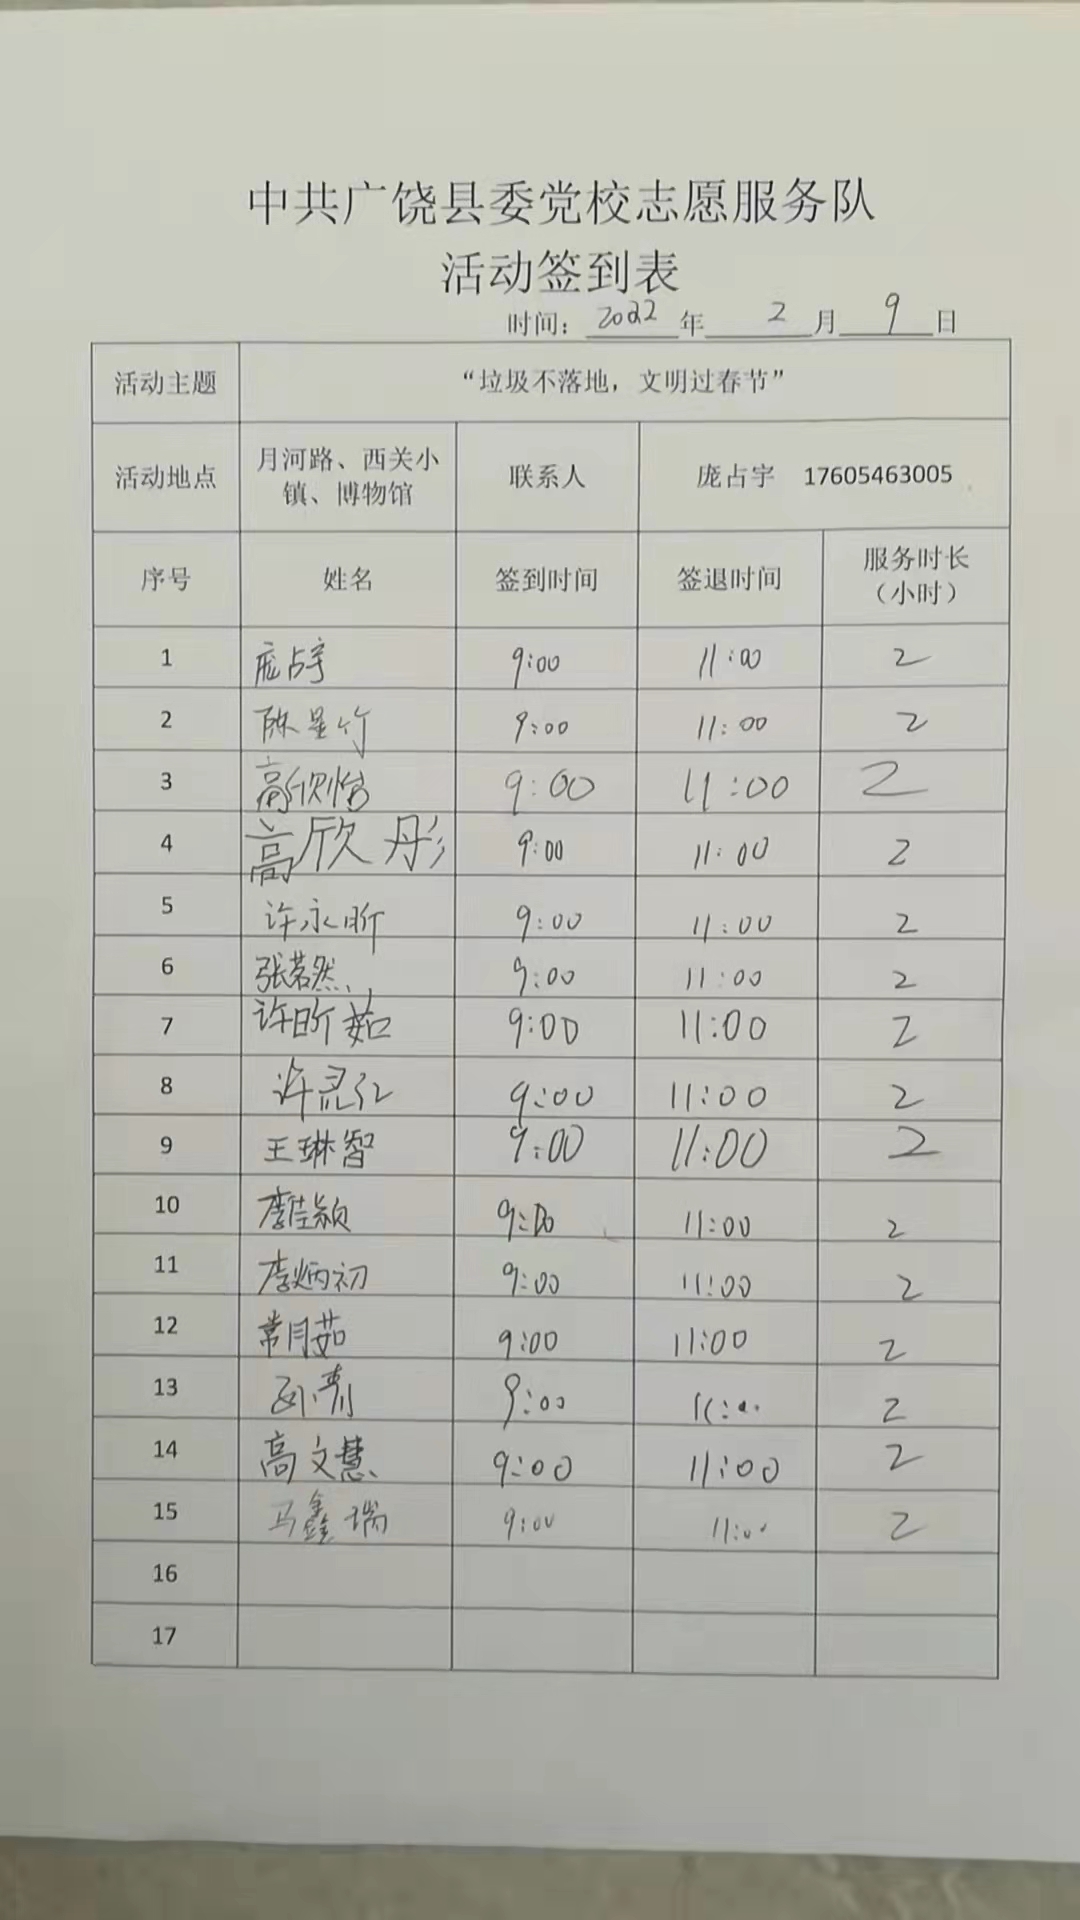 中共广饶县委党校志愿服务队
活动签到表
时间：2022年 2月 9日
活动主题 “垃圾不落地，文明过春节”
活动地点 月河路、西关小镇、博物馆 联系人 庞占宇 17605463005
序号 姓名 签到时间 签退时间 服务时长（小时）
1 庞占宇 9:00 11:00 2
2 陈星竹 9:00 11:00 2
3 高欣怡 9:00 11:00 2
4 高欣彤 9:00 11:00 2
5 许永昕 9:00 11:00 2
6 张若然 9:00 11:00 2
7 许昕茹 9:00 11:00 2
8 许灵 9:00 11:00 2
9 王琳智 9:00 11:00 2
10 李佳颖 9:00 11:00 2
11 李炳初 9:00 11:00 2
12 常月茹 9:00 11:00 2
13 孙青 9:00 11:00 2
14 高文慧 9:00 11:00 2
15 马鑫瑞 9:00 11:00 2
16
17